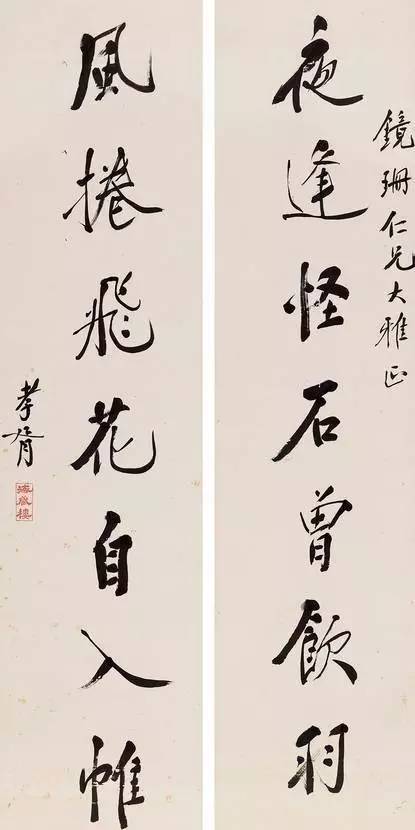 鏡珊仁兄大雅正
夜逢怪石曾飲羽
風捲飛花自入帷
孝胥